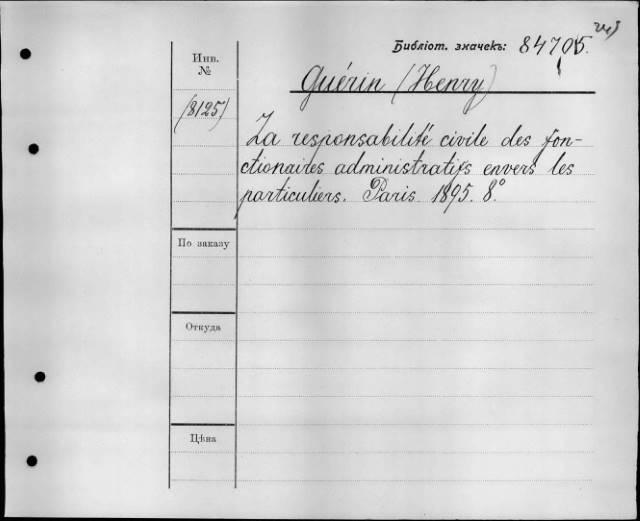 Библіот. значекъ: 84705.
Инв.
№
Guérin (Henry)
(8125)
La responsabilité civile des fon-
ctionaires administratifs envers les
particuliers. Paris 1895. 8°
По заказу
Откуда
Цѣна